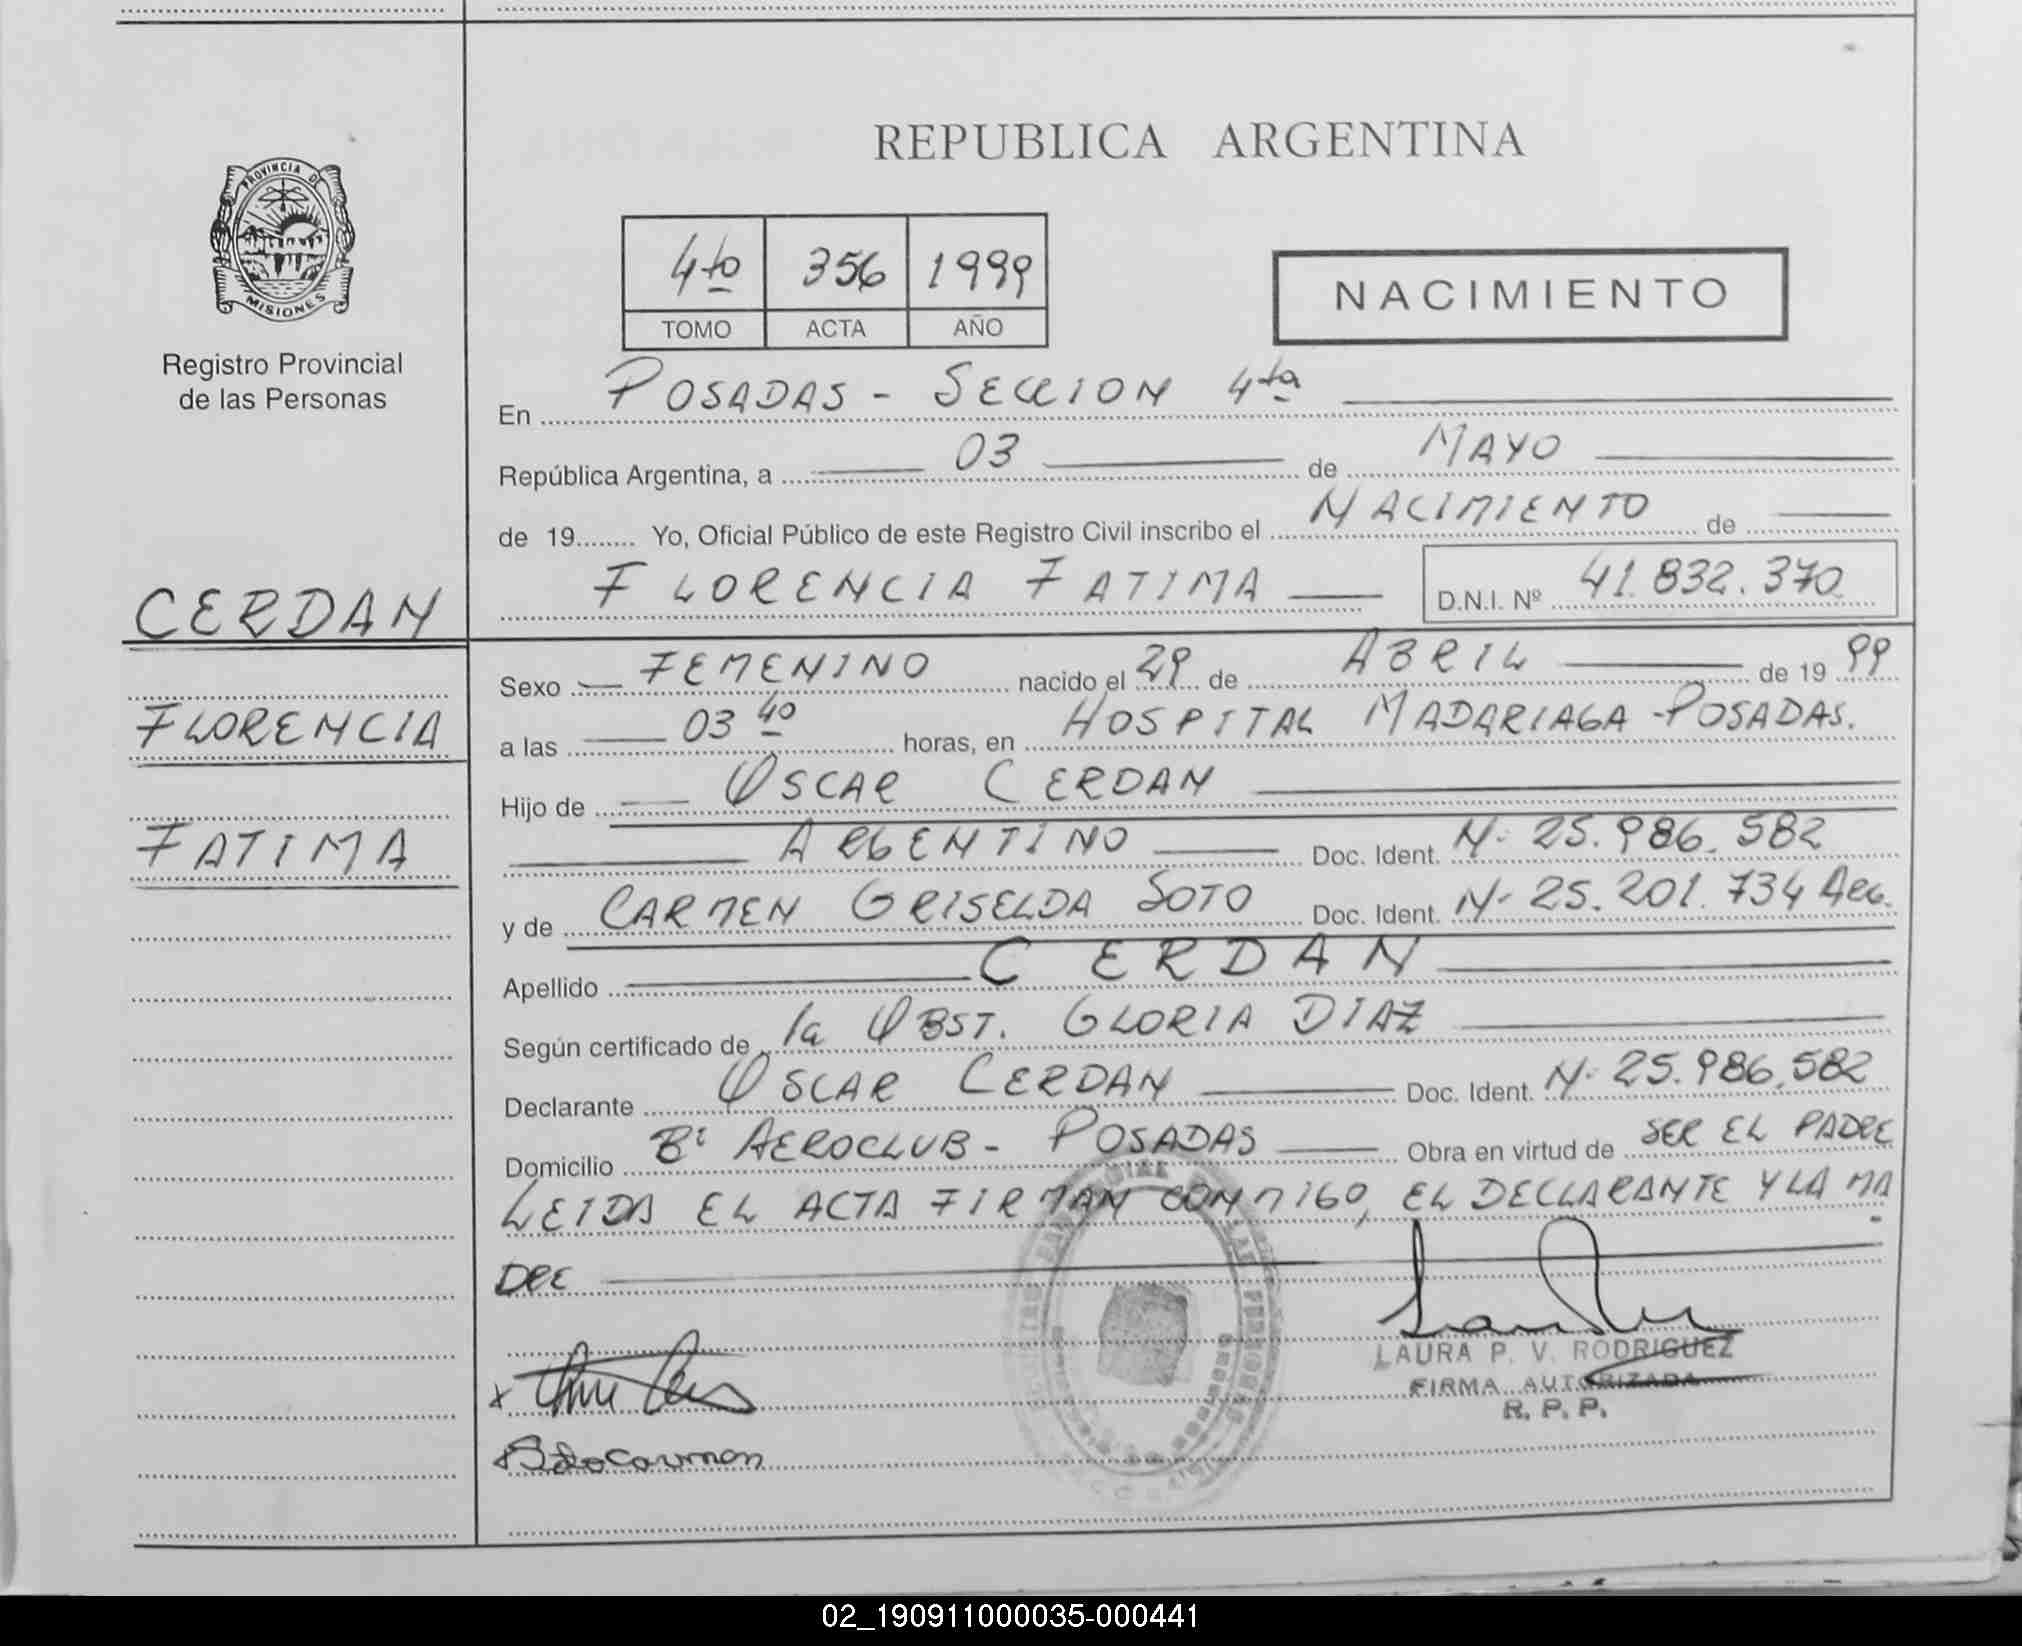 REPUBLICA ARGENTINA
PROVINCIA DE
MISIONES
Registro Provincial
de las Personas
4to 356 1999
TOMO ACTA AÑO
NACIMIENTO
En POSADAS - SECCION 4ta
República Argentina, a 03 de MAYO
de 19........ Yo, Oficial Público de este Registro Civil inscribo el NACIMIENTO de
FLORENCIA FATIMA D.N.I. Nº 41.832.370
CERDAN
FLORENCIA
FATIMA
Sexo FEMENINO nacido el 29 de ABRIL de 19 99
a las 03 40 horas, en HOSPITAL MADARIAGA - POSADAS.
Hijo de OSCAR CERDAN
ARGENTINO Doc. Ident. N- 25.986.582
y de CARMEN GRISELDA SOTO Doc. Ident. N- 25.201.734 ARG.
Apellido CERDAN
Según certificado de la OBST. GLORIA DIAZ
Declarante OSCAR CERDAN Doc. Ident. N- 25.986.582
Domicilio Bº AEROCLUB - POSADAS Obra en virtud de SER EL PADRE
LEIDA EL ACTA FIRMAN CONMIGO, EL DECLARANTE Y LA MA
DRE
LAURA P. V. RODRIGUEZ
FIRMA AUTORIZADA
R. P. P.
02_190911000035-000441